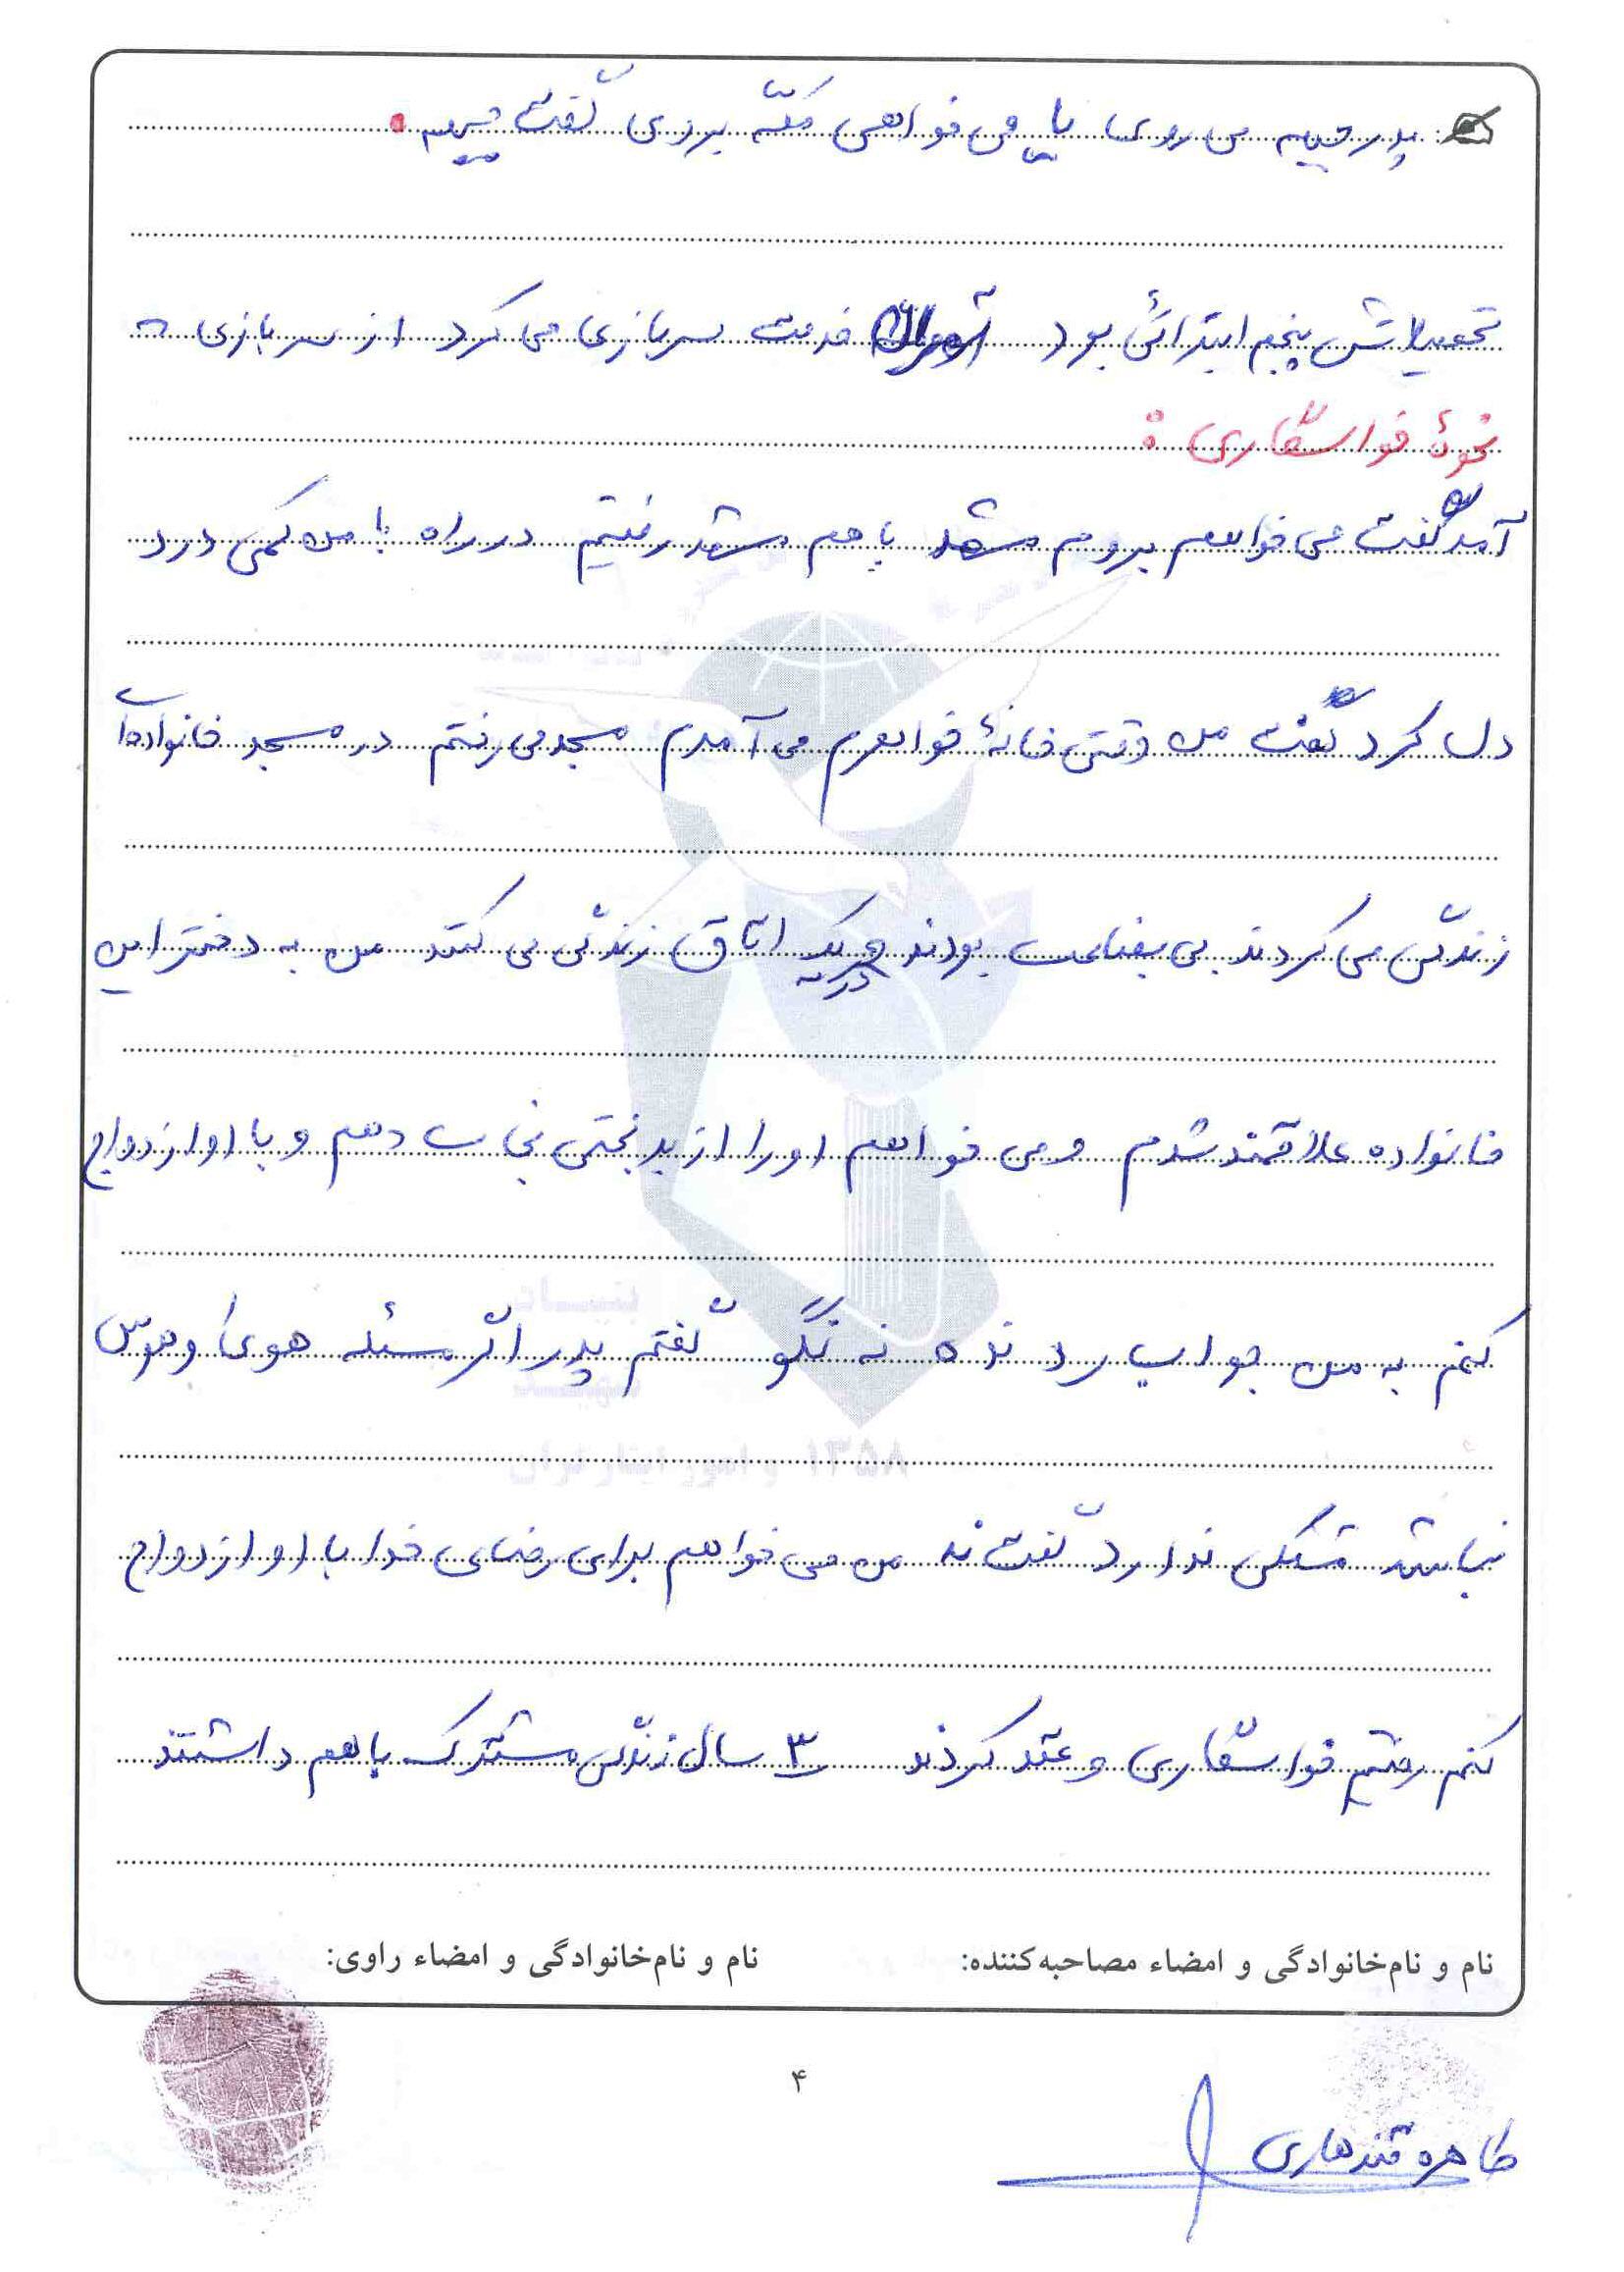 پدر جبهه می روی یا می خواهی مکّه بروی گفت جبهه.
تحصیلاتش پنجم ابتدائی بود تهران خدمت سربازی می کرد از سربازی -
نحوهٔ خواستگاری :
آمد گفت می خواهم بروم مشهد با هم مشهد رفتیم در راه با من کمی درد
دل کرد گفت من وقتی خانهٔ خواهرم می آمدم مسجد می رفتم در مسجد خانواده ای
زندگی می کردند بی بضاعت بودند در یک اتاق زندگی می کنند من به دختر این
خانواده علاقمند شدم و می خواهم او را از بدبختی نجات دهم و با او ازدواج
کنم به من جواب رد نده نه نگو گفتم پدر اگر مسئله هوی و هوس
نباشد مشکلی ندارد گفت نه من می خواهم برای رضای خدا با او ازدواج
کنم رفتیم خواستگاری و عقد کردند ۳ سال زندگی مشترک با هم داشتند
بنیاد
شهید
و امور ایثارگران ۱۳۵۸
نام و نام‌خانوادگی و امضاء مصاحبه‌کننده: نام و نام‌خانوادگی و امضاء راوی:
۴
طاهره قندهاری